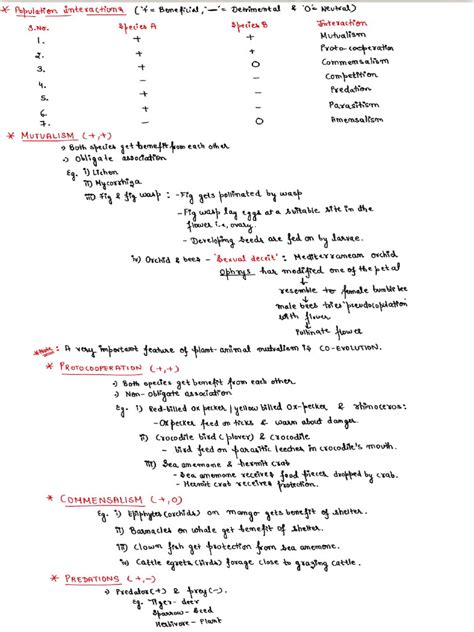 * Population Interactions ('+' = Beneficial, '—' = Detrimental & 'O' = Neutral)
S.No. Species A Species B Interaction
1. + + Mutualism
2. + + Proto-cooperation
3. + O Commensalism
4. - - Competition
5. + - Predation
6. + - Parasitism
7. - O Amensalism
* MUTUALISM (+,+)
→ Both species get benefit from each other
→ Obligate association
Eg. i) Lichen
ii) Mycorrhiza
iii) Fig & fig wasp : - Fig gets pollinated by wasp
- Fig wasp lay eggs at a suitable site in the
flower i.e, ovary.
- Developing seeds are fed on by larvae.
iv) Orchid & bees - 'Sexual deceit' : Mediterranean orchid
Ophrys has modified one of the petal
resemble to female bumble bee
male bees tries 'pseudocopulation'
with flower
Pollinate flower
* Note : A very important feature of plant-animal mutualism is CO-EVOLUTION.
* PROTOCOOPERATION (+,+)
→ Both species get benefit from each other
→ Non-obligate association
Eg. i) Red-billed oxpecker / yellow billed ox-pecker & rhinoceros:
- Oxpecker feed on ticks & warn about danger.
ii) Crocodile bird (plover) & crocodile
- bird feed on parasitic leeches in crocodile's mouth.
iii) Sea anemone & hermit crab
- Sea anemone receives food pieces dropped by crab.
- Hermit crab receives protection.
* COMMENSALISM (+,O)
Eg. i) Epiphytes (orchids) on mango gets benefit of shelter.
ii) Barnacles on whale get benefit of shelter.
iii) Clown fish get protection from sea anemone.
iv) Cattle egrets (birds) forage close to grazing cattle.
* PREDATIONS (+,-)
→ Predator(+) & prey(-).
Eg. Tiger - deer
Sparrow - Seed
Herbivore - Plant